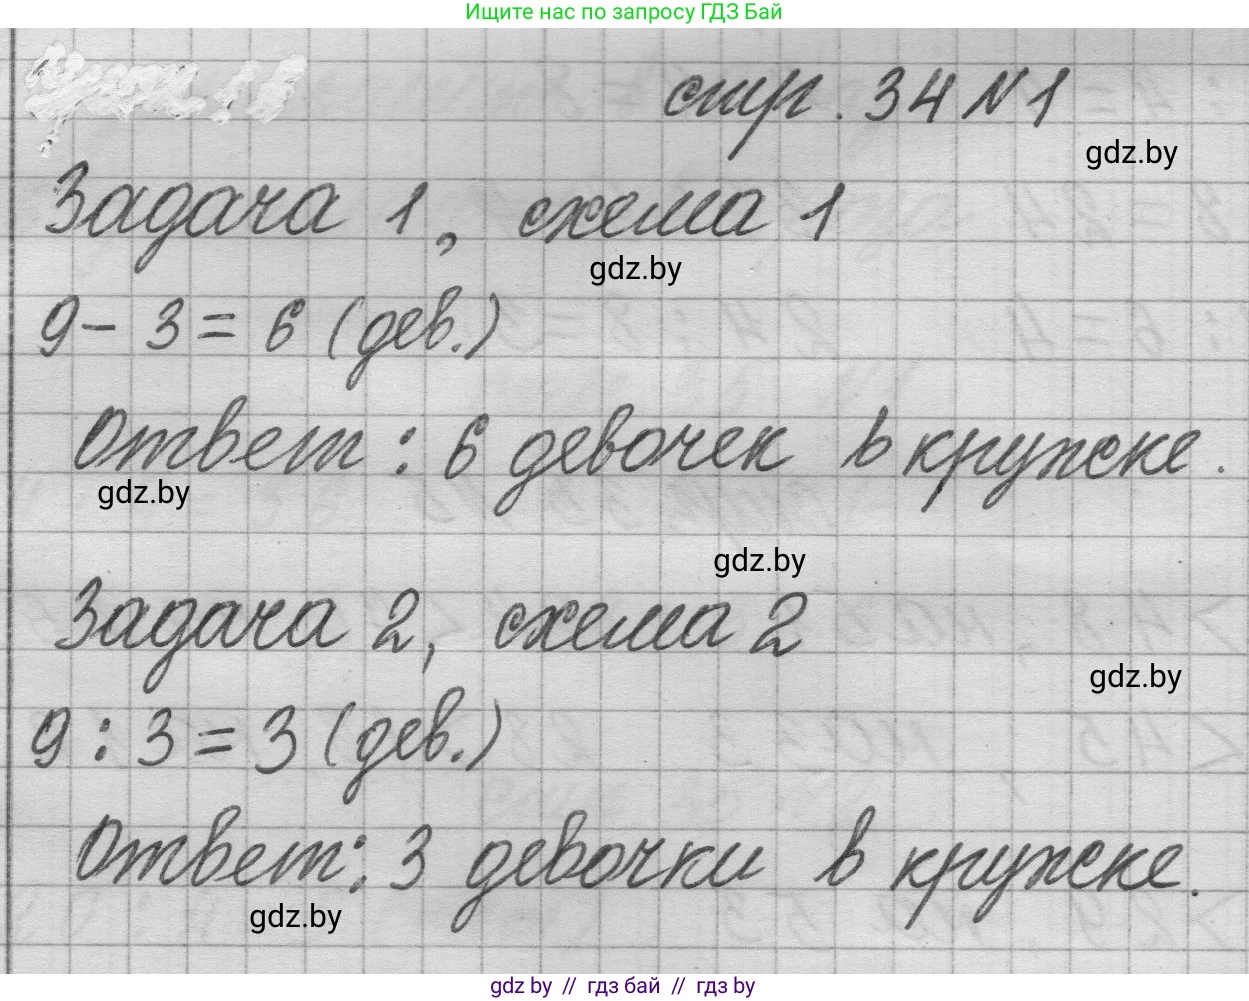 Ищите нас по запросу ГДЗ Бай
стр. 34 №1
gdz.by
Задача 1, схема 1
gdz.by
9 - 3 = 6 (дев.)
Ответ: 6 девочек в кружке.
gdz.by
gdz.by
Задача 2, схема 2
gdz.by
9 : 3 = 3 (дев.)
Ответ: 3 девочки в кружке.
gdz.by
gdz.by // гдз бай // гдз by